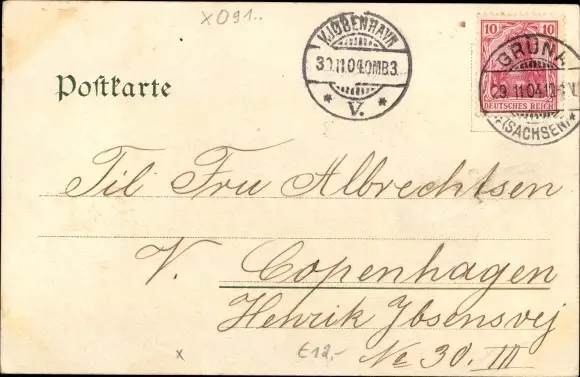 X091..
KJØBENHAVN
30.11.04.
V.
10
10
DEUTSCHES REICH
GRÜNA
29 11 04
(SACHSEN)
Postkarte
Til Fru Albrechtsen
V. Copenhagen
Henrik Ibsensvej
No 30. III
x
€12,-